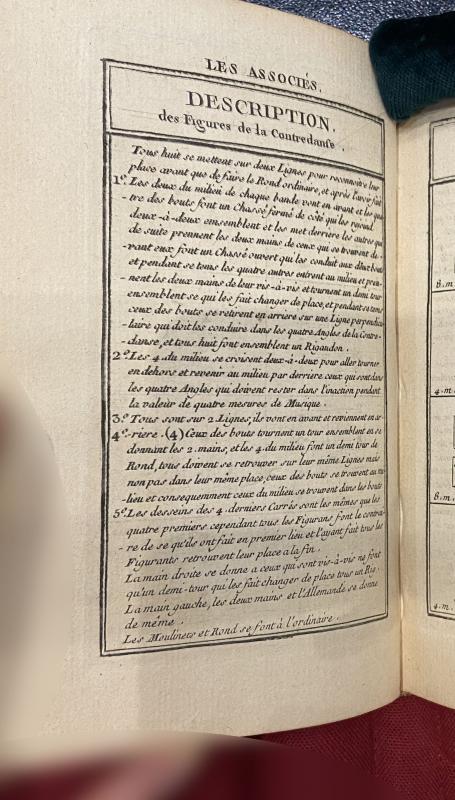 LES ASSOCIÉS.
DESCRIPTION.
des Figures de la Contredanse.
Tous huit se mettent sur deux Lignes pour reconnoitre leur
place avant que de faire le Rond ordinaire, et après l'avoir fait
1.º Les deux du milieu de chaque bande vont en avant et les qua-
-tre des bouts font un Chassé fermé de côté qui les rejoint
deux-à-deux emsemblent et les met derrière les autres qui
de suite prennent les deux mains de ceux qui se trouvent de-
-vant eux font un Chassé ouvert qui les conduit aux deux bouts
et pendant se tems les quatre autres entrent au milieu et pren-
-nent les deux mains de leur vis-à-vis et tournent un demi tour
ensemblent se qui les fait changer de place, et pendant se tems
ceux des bouts se retirent en arriere sur une Ligne perpendicu-
-laire qui doit les conduire dans les quatre Angles de la Contre-
-danse, et tous huit font ensemblent un Rigaudon.
2.º Les 4 du milieu se croisent deux-à-deux pour aller tourner
en dehors et revenir au milieu par derriere ceux qui sont dans
les quatre Angles qui doivent rester dans l'inaction pendant
la valeur de quatre mesures de Musique.
3.º Tous sont sur 2 Lignes, ils vont en avant et reviennent en ar-
4.º-riere. (4) Ceux des bouts tournent un tour ensemblent en se
donnant les 2. mains, et les 4 du milieu font un demi tour de
Rond, tous doivent se retrouver sur leur même Lignes mais
non pas dans leur même place, ceux des bouts se trouvent au mi-
-lieu et consequemment ceux du milieu se trouvent dans les bouts
5.º Les desseins des 4. derniers Carrés sont les mêmes que les
quatre premiers cependant tous les Figurans font le contrai-
-re de se qu'ils ont fait en premier lieu et l'ayant fait tous les
Figurants retrouvent leur place a la fin.
La main droite se donne a ceux qui sont vis-à-vis ne font
qu'un demi-tour qui les fait changer de place tous un Rig.
La main gauche, les deux mains et l'Allemande se donne
de même.
Les Moulinets et Rond se font à l'ordinaire.
8.m.
4.m.
8.m.
4.m.